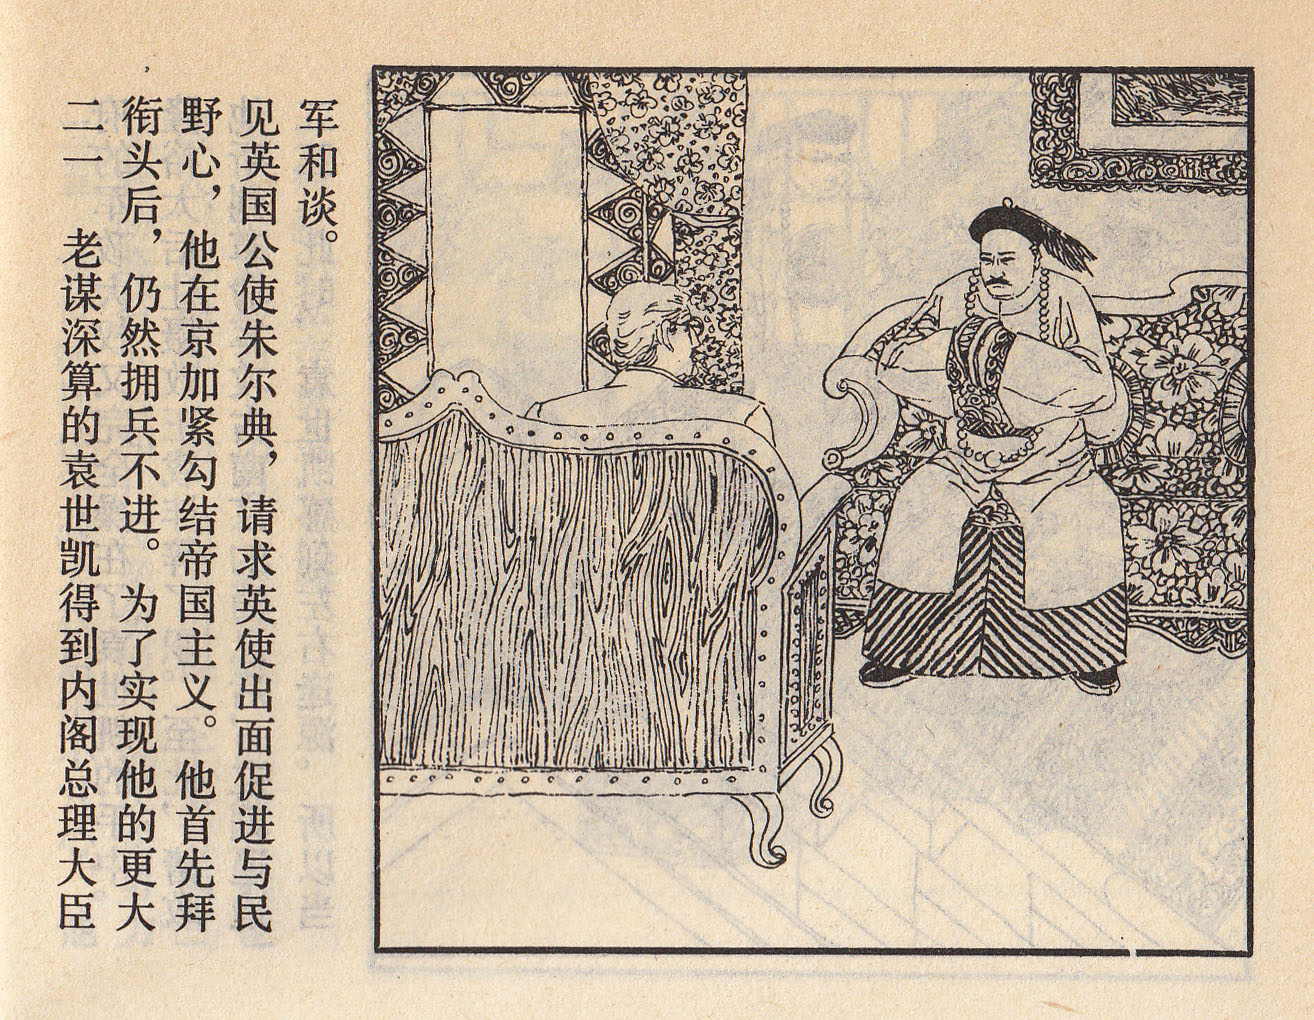 二一 老谋深算的袁世凯得到内阁总理大臣
衔头后，仍然拥兵不进。为了实现他的更大
野心，他在京加紧勾结帝国主义。他首先拜
见英国公使朱尔典，请求英使出面促进与民
军和谈。